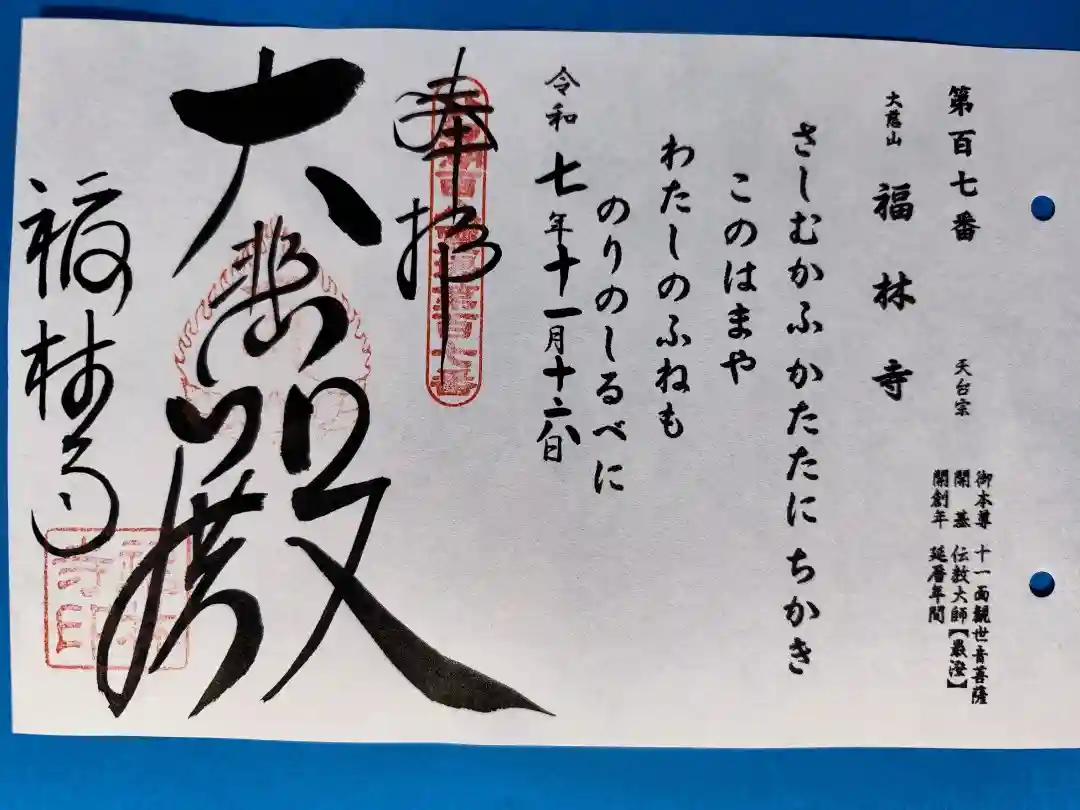 第百七番 天台宗
御本尊 十一面観世音菩薩
開基 伝教大師【最澄】
開創年 延暦年間
大慈山 福林寺
さしむかふかたたにちかき
このはまや
わたしのふねも
のりのしるべに
令和七年十一月十六日
奉拝
大悲殿
福林寺
福林寺印